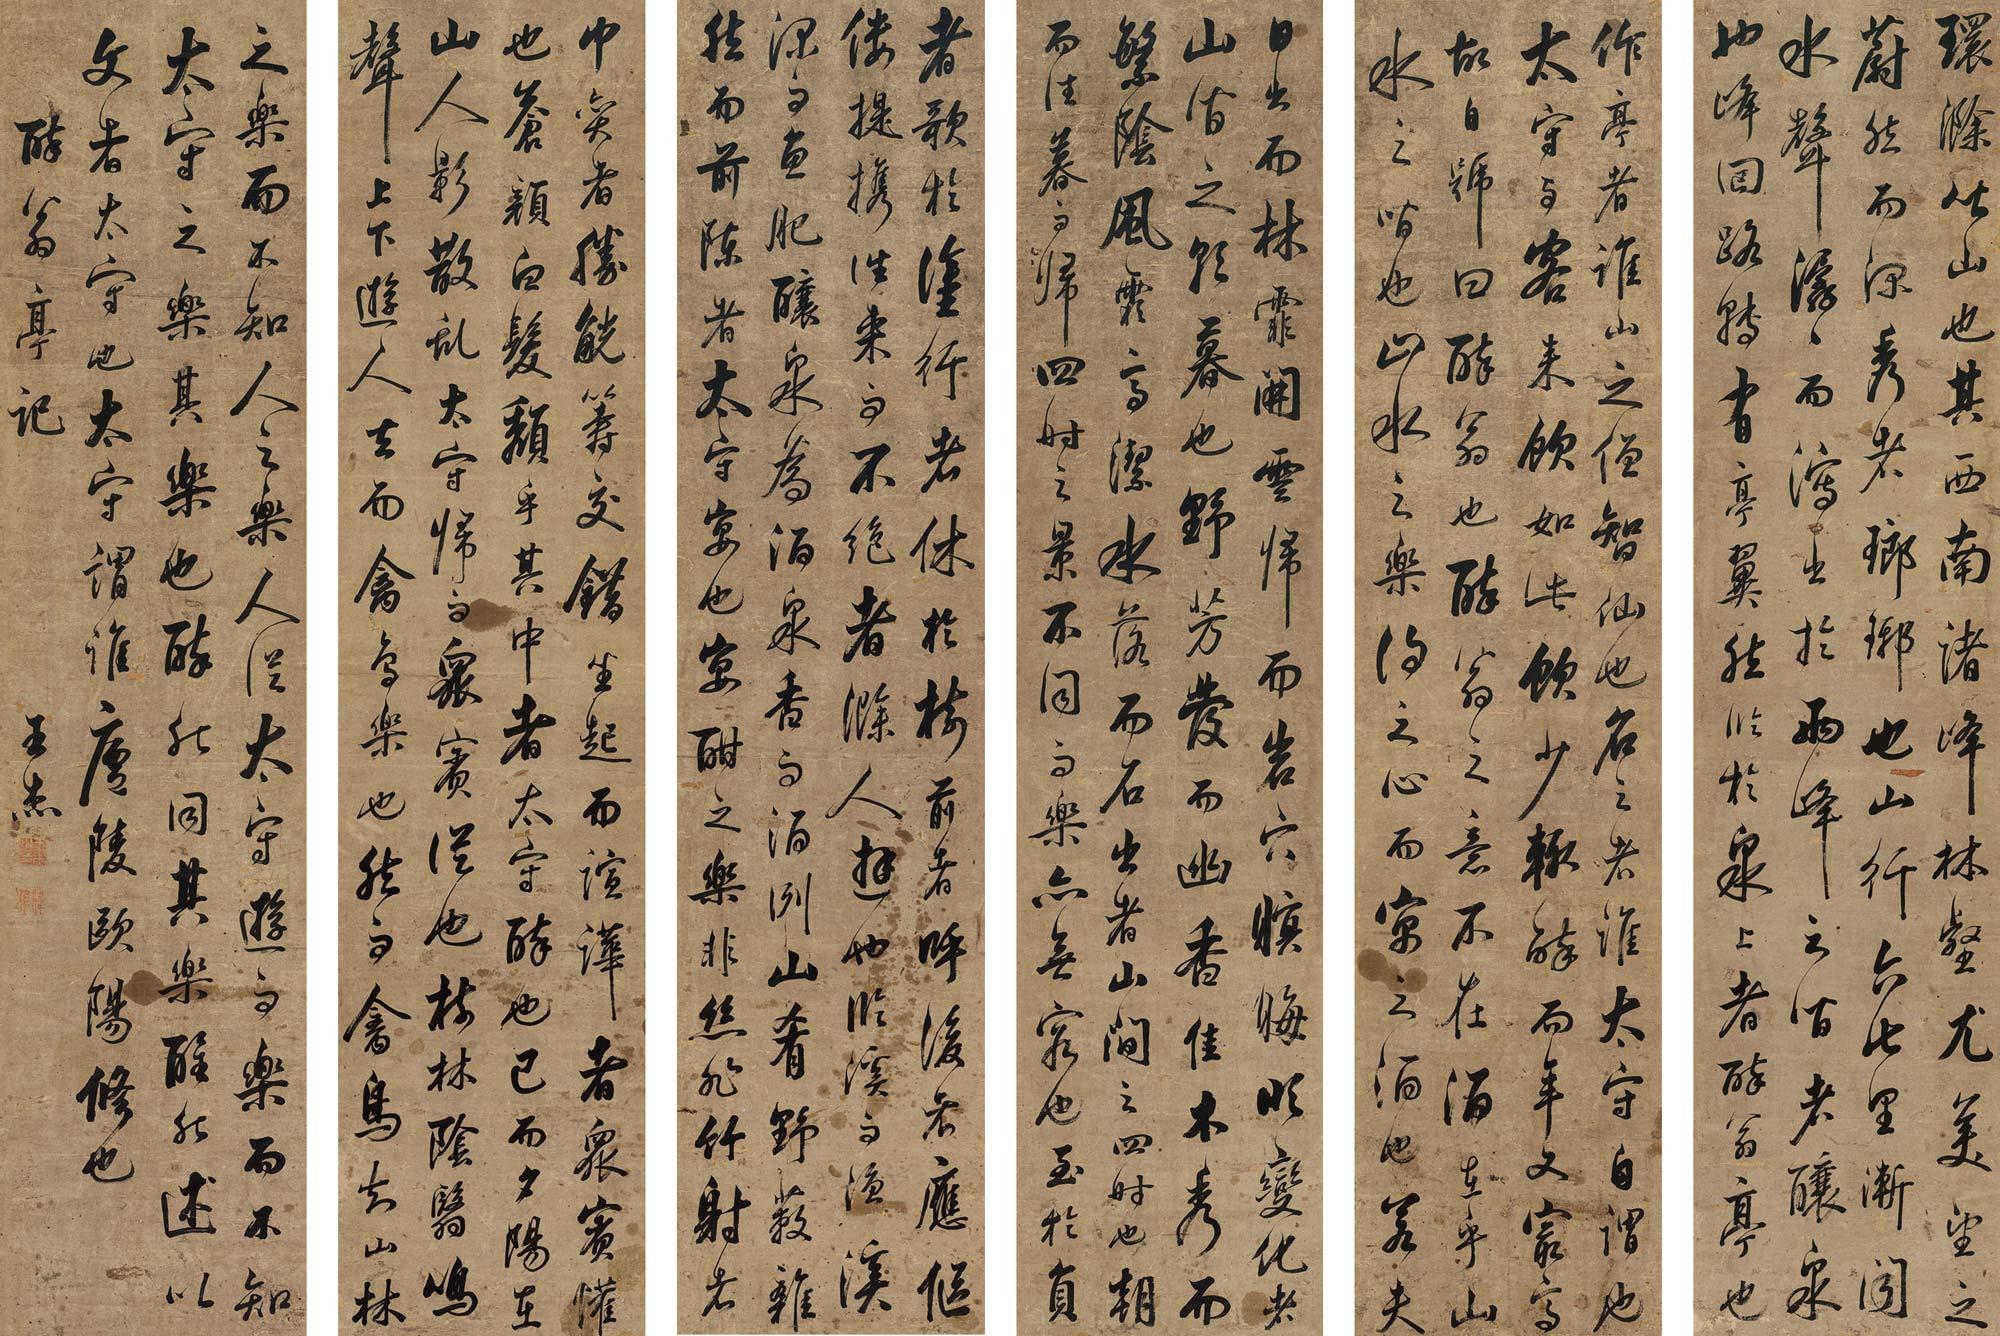 環滁皆山也其西南諸峰林壑尤美望之
蔚然而深秀者瑯琊也山行六七里漸聞
水聲潺々而瀉出於兩峰之間者釀泉
也峰回路轉有亭翼然臨於泉上者醉翁亭也
作亭者誰山之僧智仙也名之者誰太守自謂也
太守与客来飲如此飲少輒醉而年又最高
故自號曰醉翁也醉翁之意不在酒在乎山
水之間也山水之樂得之心而寓之酒也若夫
日出而林霏開雲歸而岩穴暝晦明變化者
山間之朝暮也野芳發而幽香佳木秀而
繁陰風霜高潔水落而石出者山間之四時也朝
而往暮而歸四時之景不同而樂亦無窮也至於負
者歌於塗行者休於樹前者呼後者應傴
僂提攜往来而不絕者滁人遊也臨溪而漁溪
深而魚肥釀泉為酒泉香而酒洌山肴野蔌雜
然而前陳者太守宴也宴酣之樂非絲非竹射者
中奕者勝觥籌交錯坐起而諠譁者眾賓懽
也蒼顏白髮頹乎其中者太守醉也已而夕陽在
山人影散亂太守歸而眾賓從也樹林陰翳鳴
聲上下遊人去而禽鳥樂也然而禽鳥知山林
之樂而不知人之樂人從太守遊而樂而不知
太守之樂其樂也醉能同其樂醒能述以
文者太守也太守謂誰廬陵歐陽修也
醉翁亭記
王杰